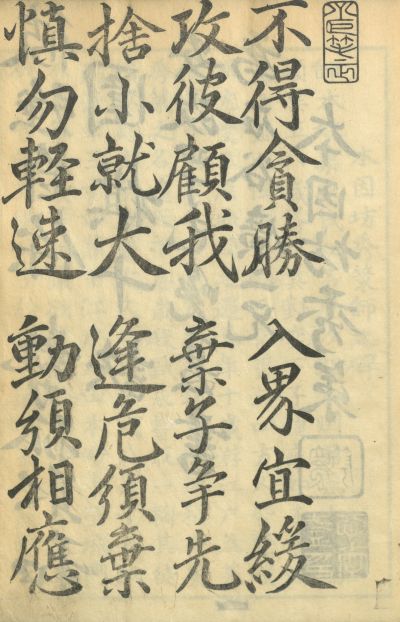 不得貪勝 入界宜緩
攻彼顧我 棄子争先
捨小就大 逢危須棄
慎勿軽速 動須相應